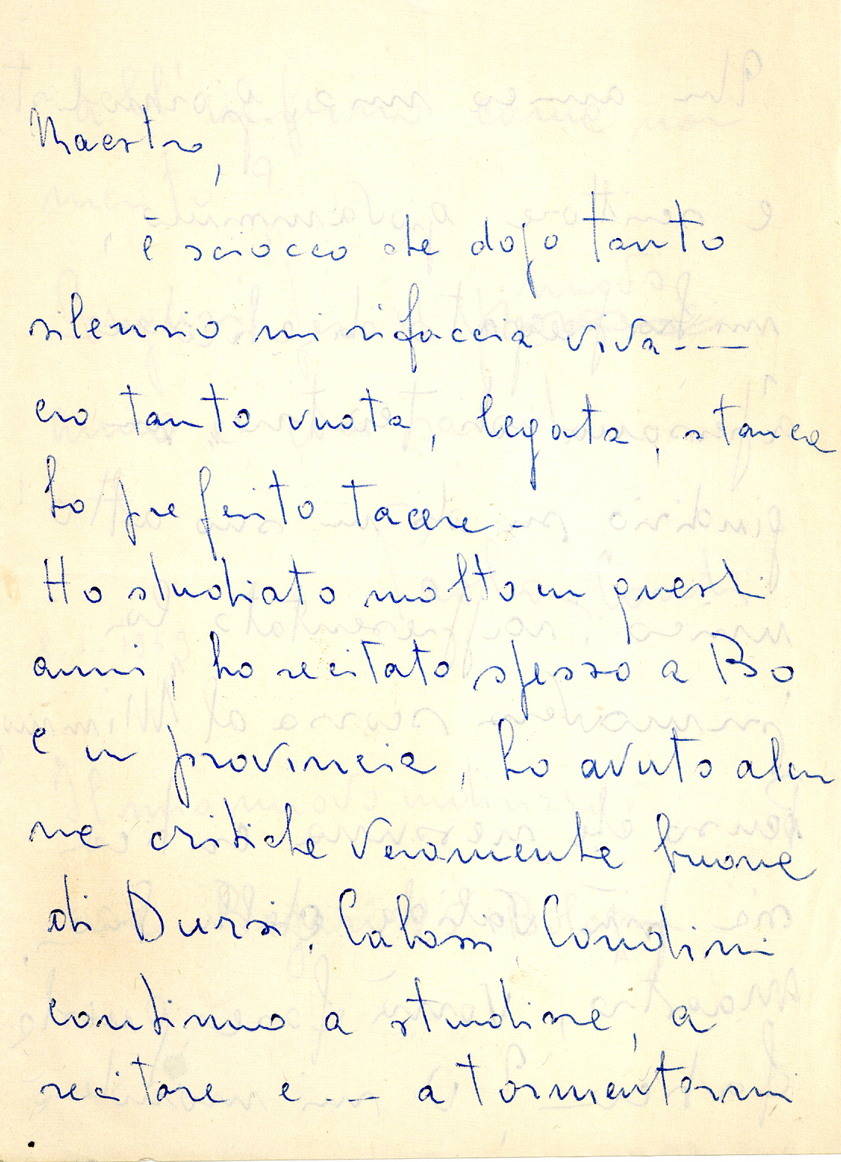 Maestro,
è sciocco che dopo tanto
silenzio mi rifaccia viva---
ero tanto vuota, legata, stanca
ho preferito tacere-
Ho studiato molto in questi
anni, ho recitato spesso a Bo
e in provincia, ho avuto alcu
ne critiche veramente buone
di Dursi, Calossi, Condini
continuo a studiare, a
recitare e --- a tormentarmi